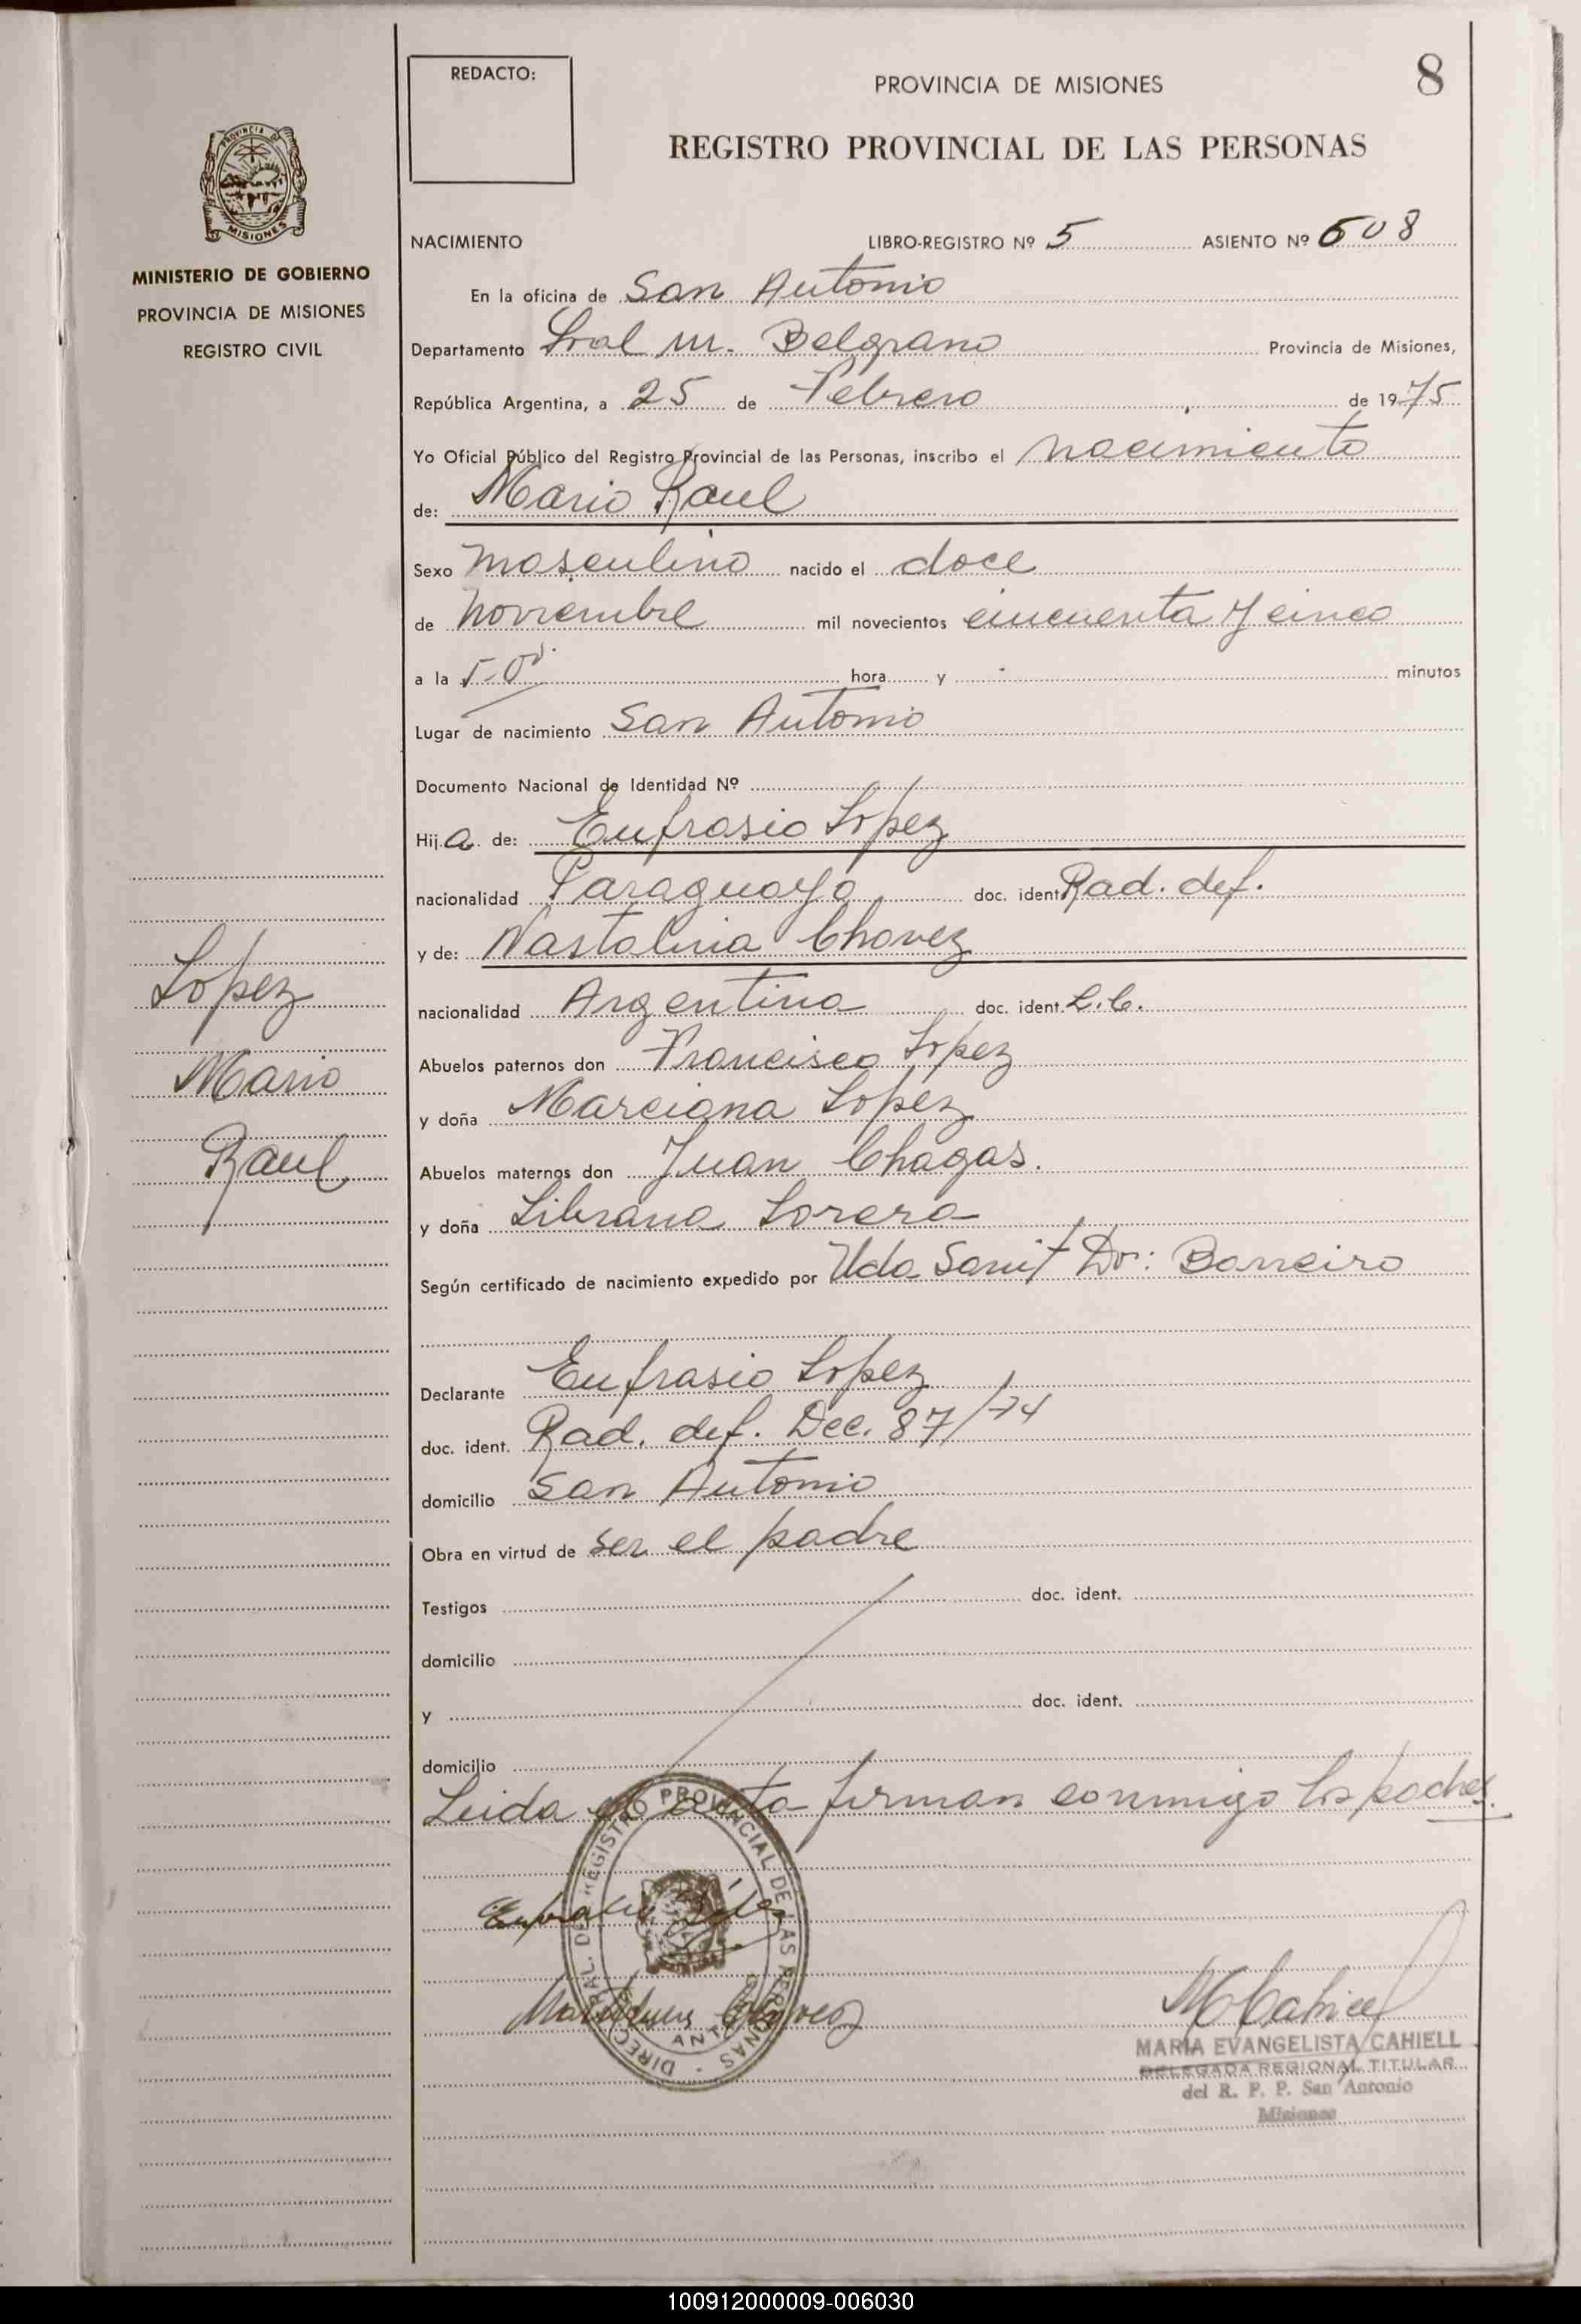 REDACTO:
PROVINCIA DE MISIONES
8
REGISTRO PROVINCIAL DE LAS PERSONAS
PROVINCIA DE
MISIONES
MINISTERIO DE GOBIERNO
PROVINCIA DE MISIONES
REGISTRO CIVIL
NACIMIENTO LIBRO-REGISTRO Nº 5 ASIENTO Nº 608
En la oficina de San Antonio
Departamento Gral M. Belgrano Provincia de Misiones,
República Argentina, a 25 de Febrero de 1975
Yo Oficial Público del Registro Provincial de las Personas, inscribo el nacimiento
de: Mario Raul
Sexo masculino nacido el doce
de noviembre mil novecientos cincuenta y cinco
a la 5-00 hora y - minutos
Lugar de nacimiento San Antonio
Documento Nacional de Identidad Nº
Hija de: Eufrasio Lopez
nacionalidad Paraguaya doc. ident. Rad. def.
y de: Nastalina Chavez
nacionalidad Argentina doc. ident. L.C.
Abuelos paternos don Francisco Lopez
y doña Marciana Lopez
Abuelos maternos don Juan Chagas.
y doña Librana
Según certificado de nacimiento expedido por Uda Sanit Dr: Barreiro
Declarante Eufrasio Lopez
doc. ident. Rad. def. Dec. 87/74
domicilio San Antonio
Obra en virtud de ser el padre
Testigos doc. ident.
domicilio
y doc. ident.
domicilio
Leida el acta firman conmigo los padres.
Lopez
Mario
Raul
DIREC. GRAL. DEL REGISTRO PROVINCIAL DE LAS PERSONAS
MARIA EVANGELISTA CAHIELL
DELEGADA REGIONAL TITULAR
del R. P. P. San Antonio
Misiones
100912000009-006030